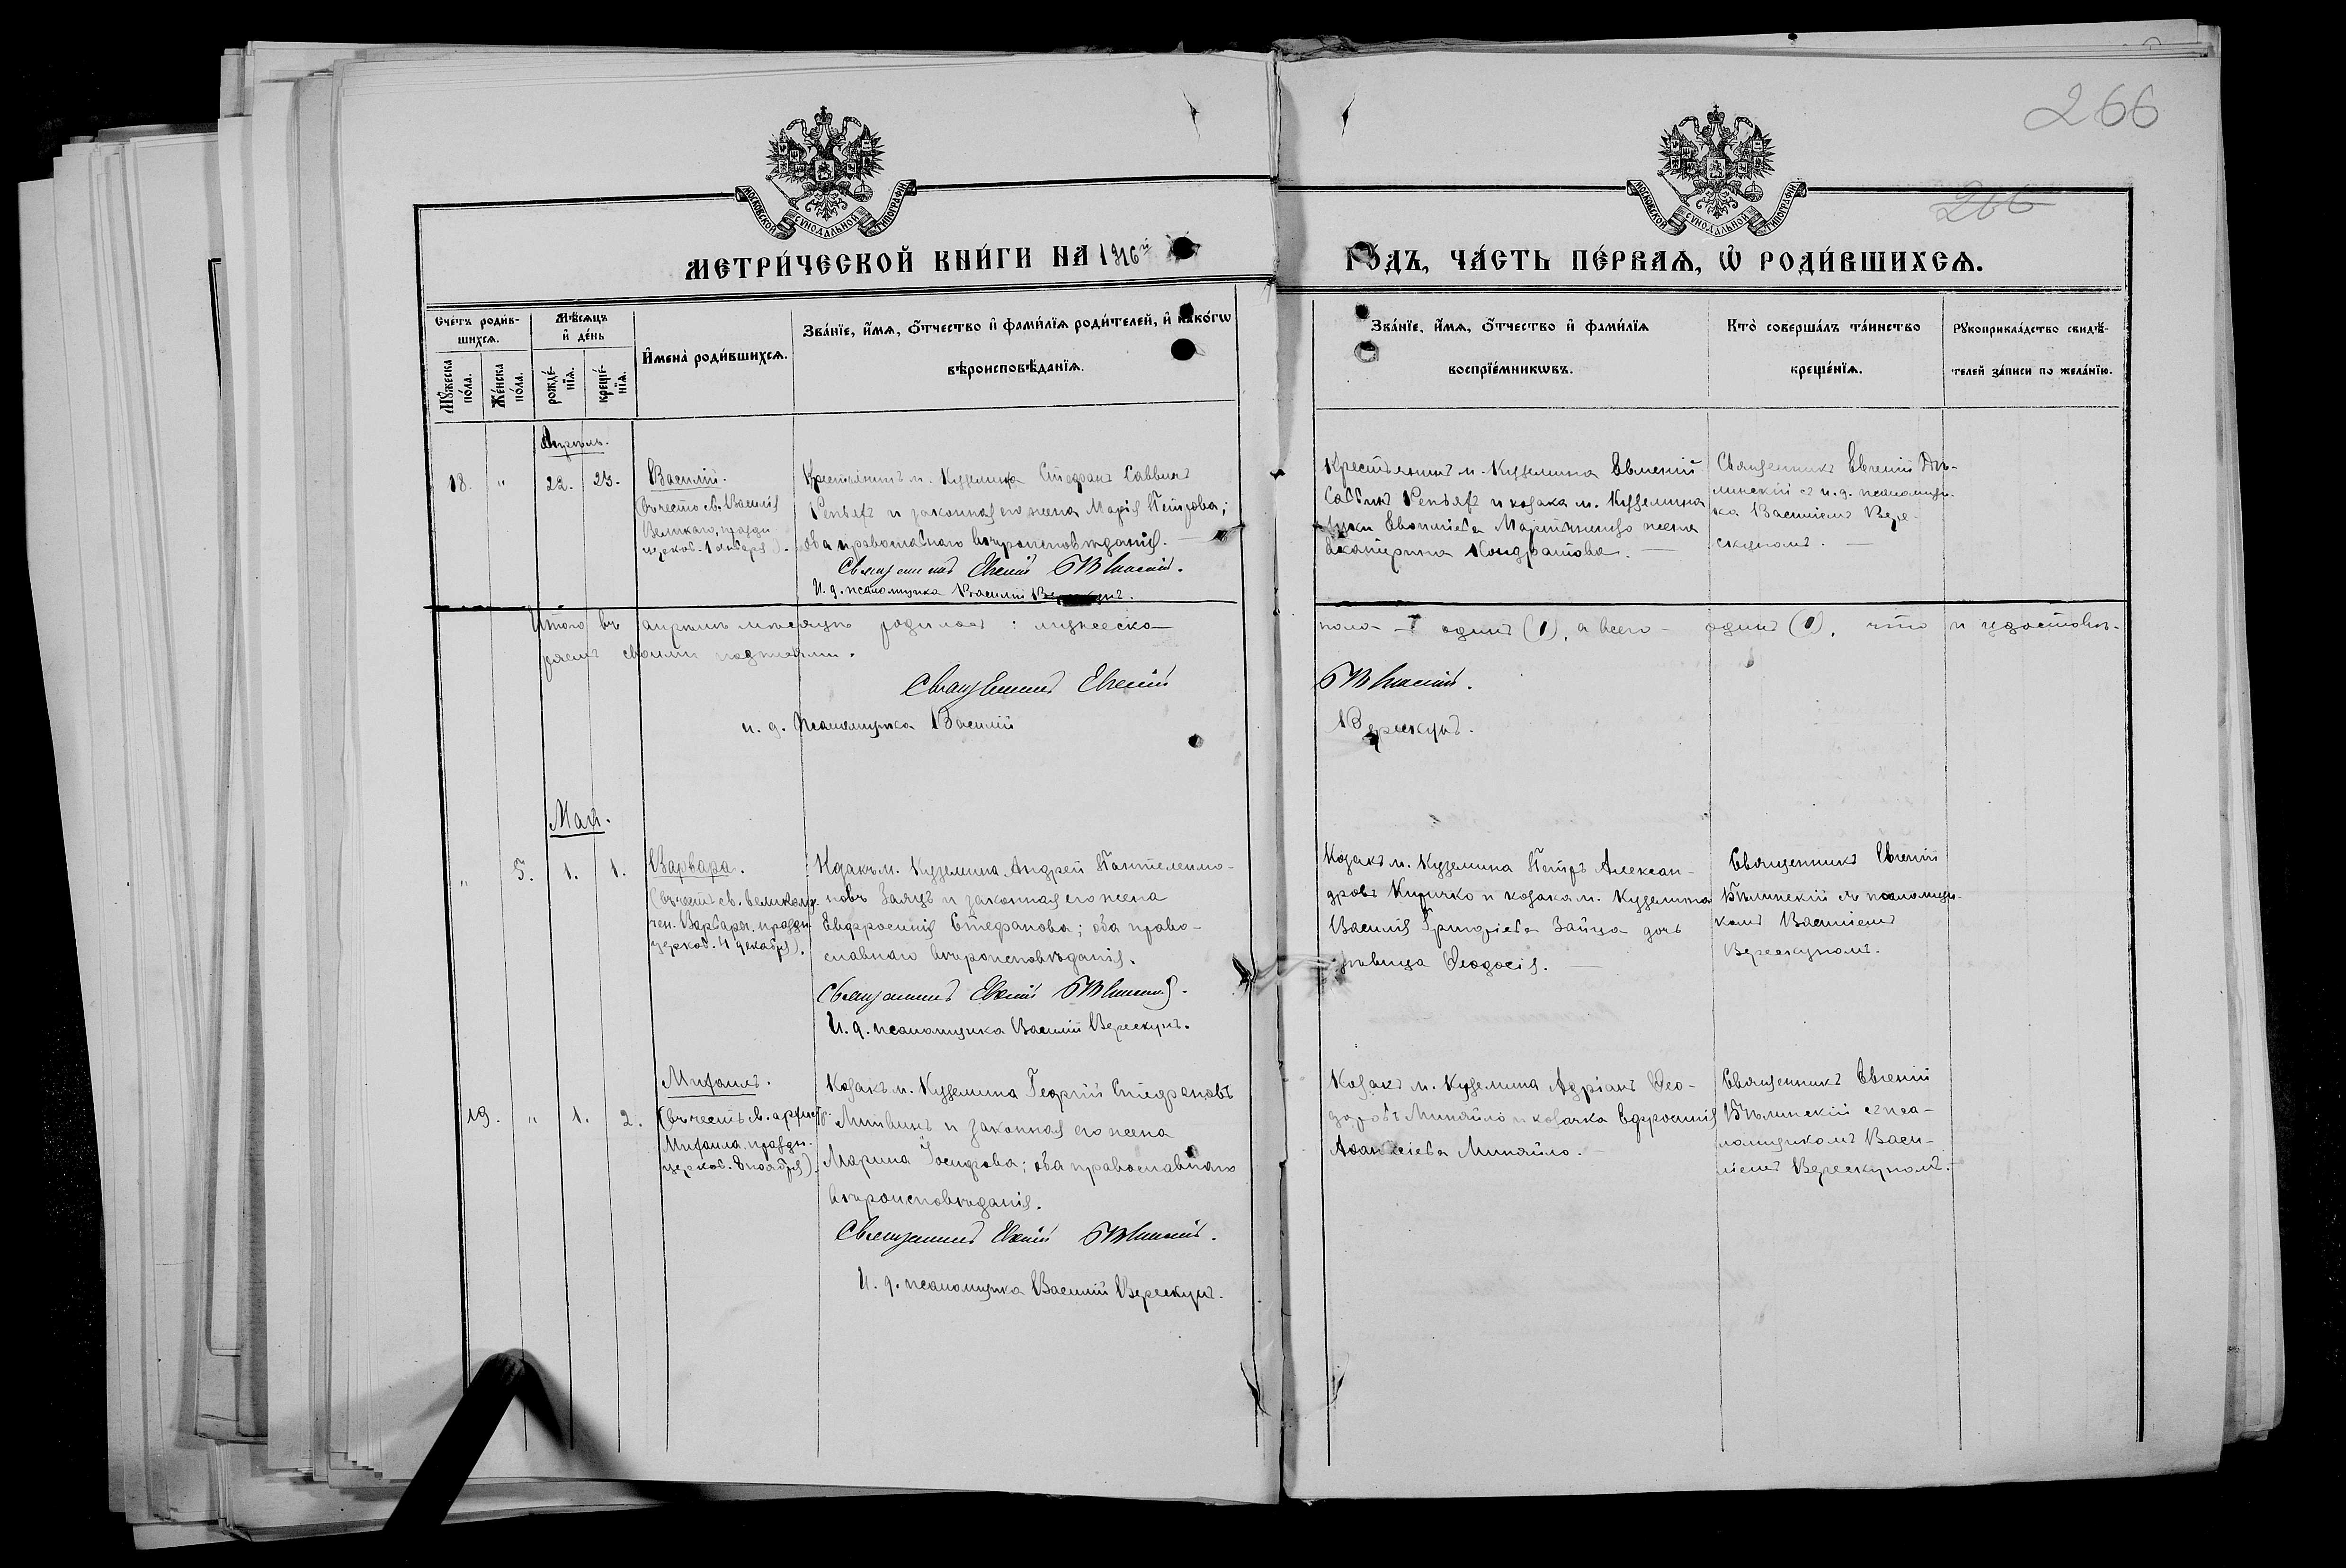 266
266
МОСКОВСКОЙ СѴНОДАЛЬНОЙ ТИПОГРАФІИ
МОСКОВСКОЙ СѴНОДАЛЬНОЙ ТИПОГРАФІИ
МЕТРИ́ЧЕСКОЙ КНИ́ГИ НА 1916й
ГО́ДЪ, ЧА́СТЬ ПЕ́РВАѦ, Ѡ РОДИ́ВШИХСѦ.
Сче́тъ роди́в-
шихсѧ.
Мꙋ́жеска
по́ла.
Же́нска
по́ла.
Мѣ́сѧцъ
и҆ де́нь
рожде́-
нїѧ.
креще́-
нїѧ.
И҆мена̀ роди́вшихсѧ.
Зва́нїе, и҆́мѧ, ѻ҆́тчество и҆ фами́лїѧ роди́телей, и҆ како́гѡ
вѣроисповѣ́данїѧ.
Зва́нїе, и҆́мѧ, ѻ҆́тчество и҆ фами́лїѧ
воспрїе́мникѡвъ.
Кто̀ соверша́лъ та́инство
креще́нїѧ.
Рꙋкоприкла́дство свидѣ́-
телей за́писи по жела́нїю.
Апрѣль.
18. " 22. 23.
Василій.
(въ честь св. Василія
Великаго, праздн.
церков. 1 января).
Крестьянинъ м. Куземина Стефанъ Саввинъ
Репяхъ и законная его жена Марія Петрова;
оба православнаго вѣроисповѣданія.
Священникъ Евгеній Бѣлинскій.
И. д. псаломщика Василій
Крестьянинъ м. Куземина Евменій
Саввинъ Репяхъ и козака м. Куземина
жена
Екатерина Кондратова.
Священникъ Евгеній Бѣ-
линскій съ и. д. псаломщи-
ка Василіемъ Вере-
скуномъ.
Итого въ апрѣлѣ мѣсяцѣ родилось: мужеска
пола - одинъ (1), а всего - одинъ (1), что и удостовѣ-
ряемъ своими подписями.
Священникъ Евгеній
Бѣлинскій.
и. д. Псаломщика Василій
Верескунъ.
Май.
" 5. 1. 1.
Варвара.
(въ честь св. великому-
чен. Варвары, праздн.
церков. 4 декабря).
Козакъ м. Куземина Андрей Пантелеимо-
новъ Заяцъ и законная его жена
Евфросинія Стефанова; оба право-
славнаго вѣроисповѣданія.
Священникъ Евгеній Бѣлинскій.
И. д. псаломщика Василій Верескунъ.
Козакъ м. Куземина Петръ Алексан-
дровъ Киричко и козака м. Куземина
Василія Григоріева Зайца дочь
дѣвица Ѳеодосія.
Священникъ Евгеній
Бѣлинскій съ псаломщи-
комъ Василіемъ
Верескуномъ.
19. " 1. 2.
Михаилъ.
(въ честь св. архистр.
Михаила, праздн.
церков. 8 ноября).
Козакъ м. Куземина Георгій Стефановъ
Литвинъ и законная его жена
Марина Іосифова; оба православнаго
вѣроисповѣданія.
Священникъ Евгеній Бѣлинскій.
И. д. псаломщика Василій Верескунъ.
Козакъ м. Куземина Адріанъ Ѳео-
доровъ Миняйло и козачка Ефросинія
Миняйло.
Священникъ Евгеній
Бѣлинскій съ пса-
ломщикомъ Васи-
ліемъ Верескуномъ.